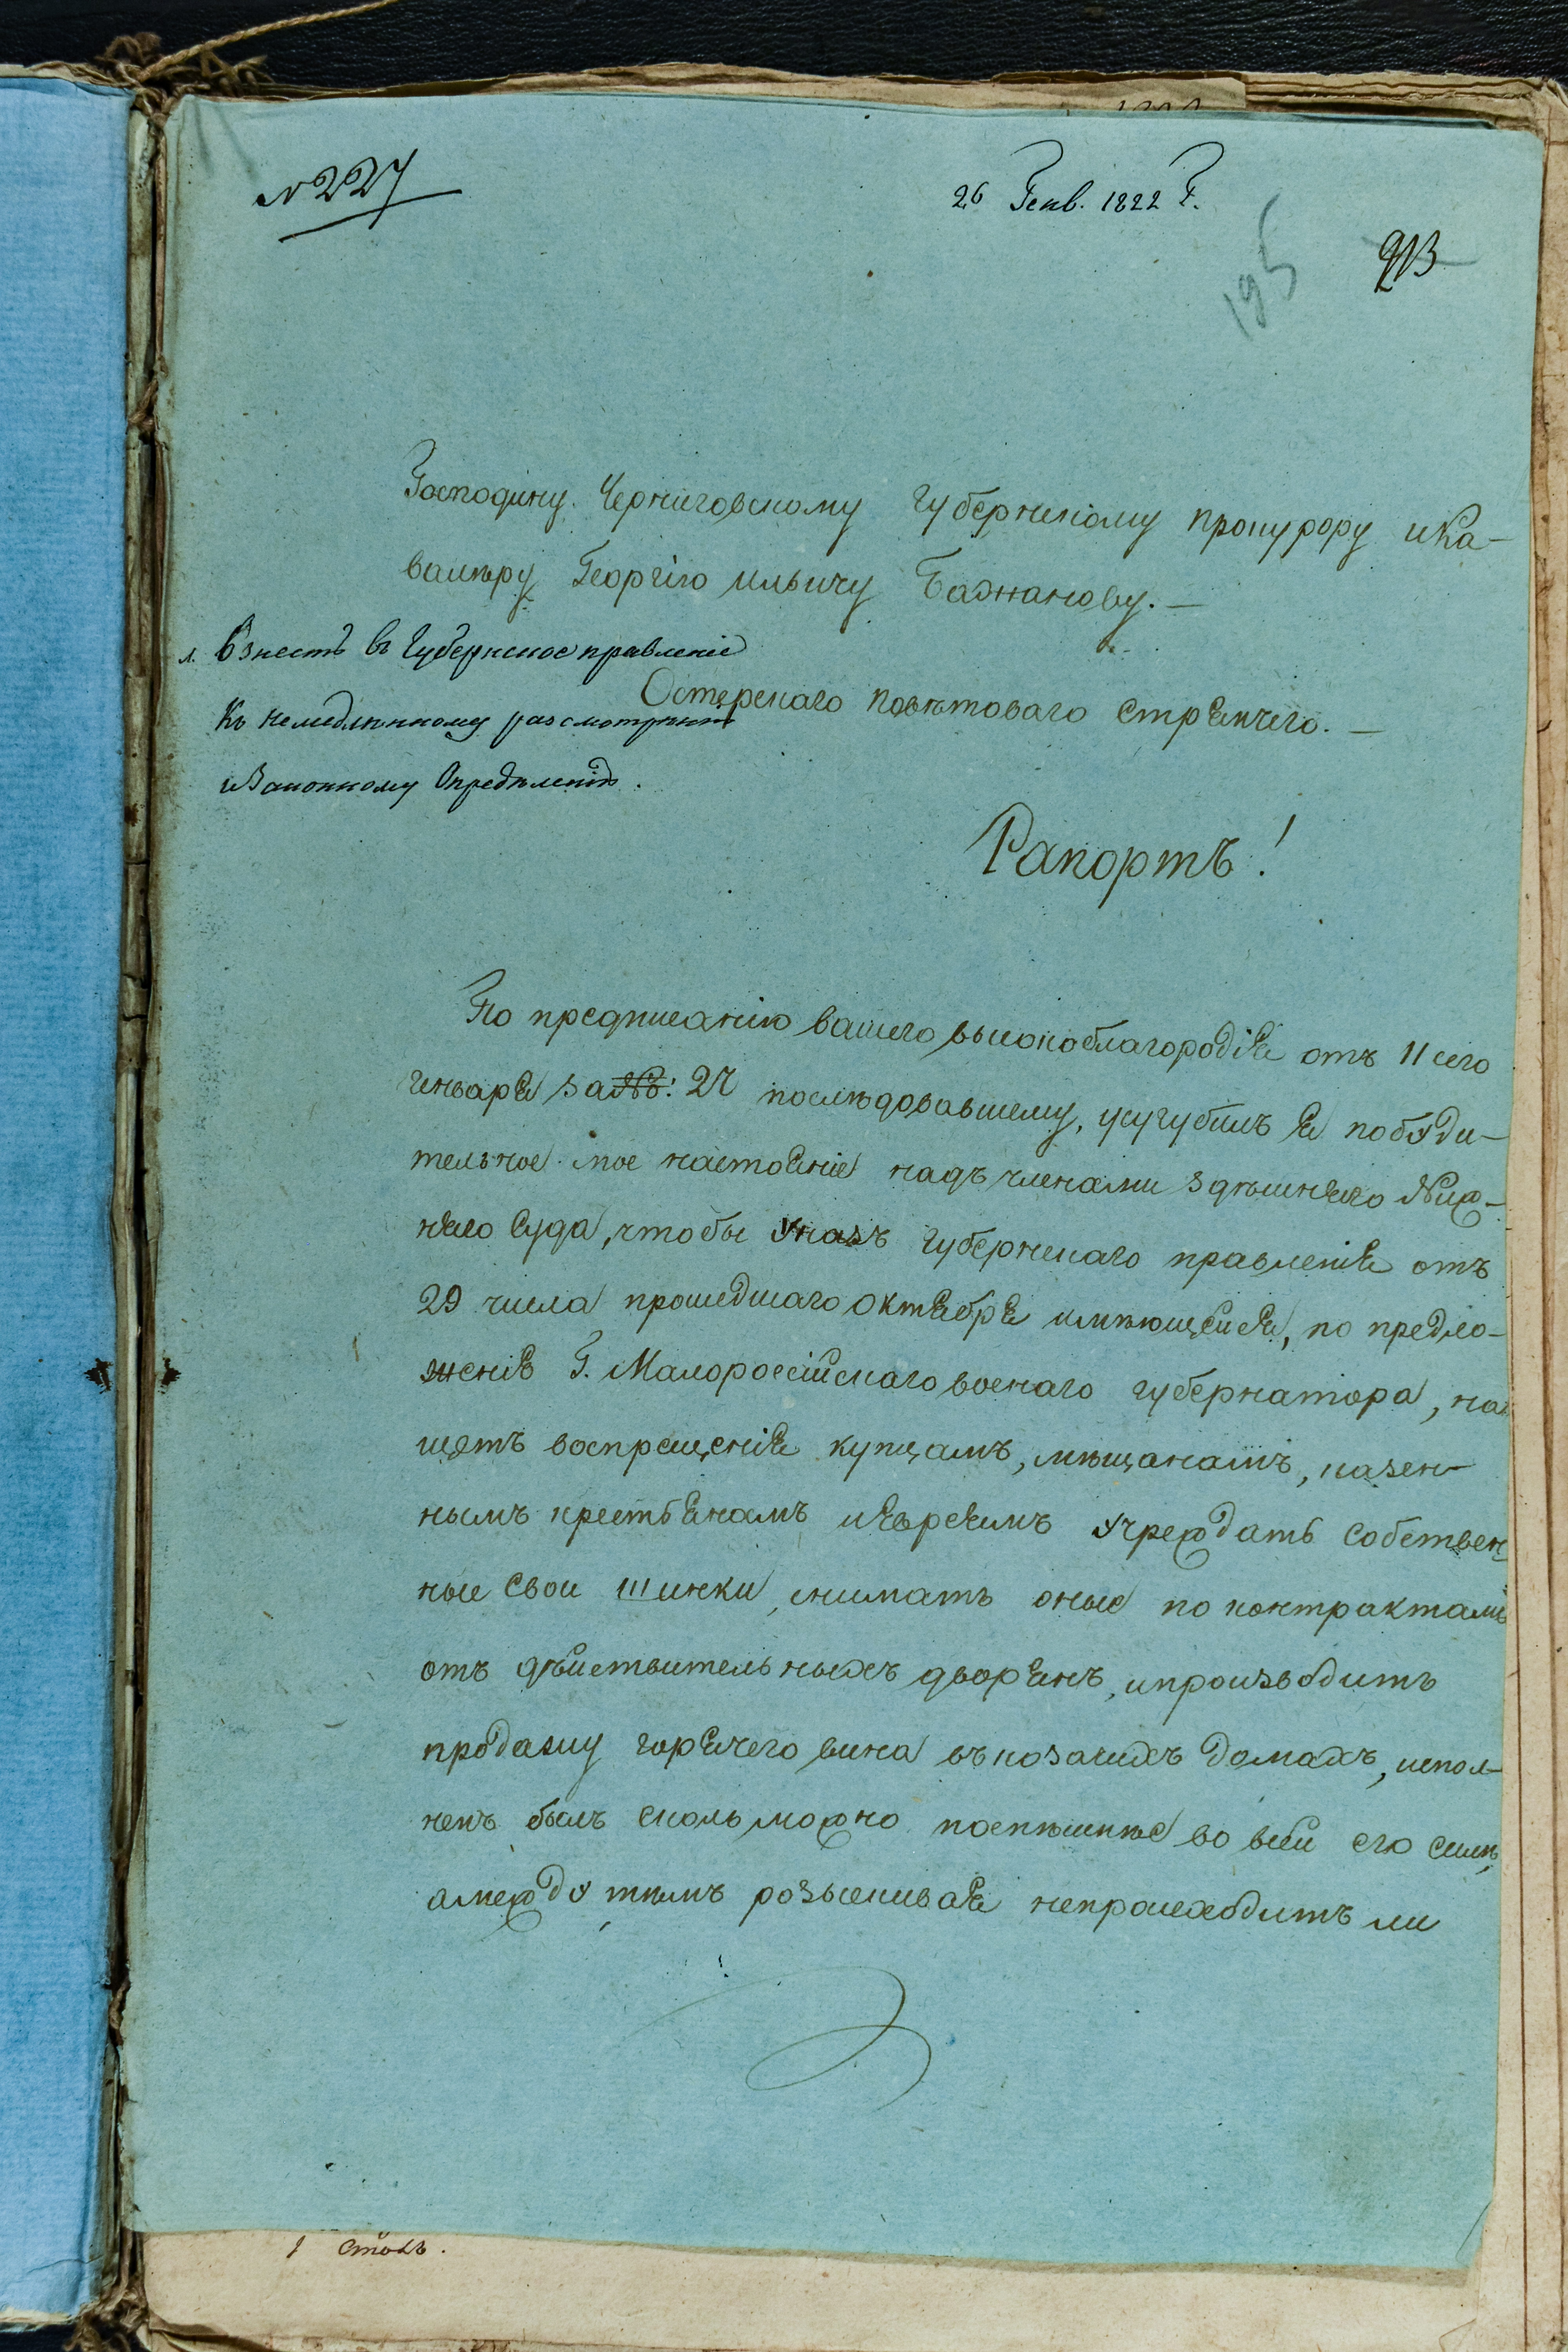 № 227
26 Генв. 1822 г.
195
213
Господину Черниговскому Губернскому прокурору и Ка-
валеру Георгію Ильичу Бажанову.—
Взнесть въ Губернское правленіе
Къ немедленному разсмотренію
и Законному Определенію.
Остерского поветоваго стряпчего.—
Рапортъ!
По предписанію вашего высокоблагородія отъ 11 сего
генваря за №: 27 последовавшему, усугубилъ я побуди-
тельное мое настояніе надъ членами здешнего Ниж-
няго Суда, чтобы указъ губернскаго правленія отъ
29 числа прошедшаго октября имеющейся, по предло-
женію Г. Малороссійскаго военаго губернатора, на
щетъ воспрещенія купцамъ, мещанамъ, казен-
нымъ крестьянамъ и евреямъ учреждать собствен-
ные свои шинки, снимать оные по контрактамъ
отъ действительныхъ дворянъ, и производить
продажу горячего вина въ козачихъ домахъ, испол-
ненъ былъ сколь можно поспешнее во всей его силе,
а между темъ розыскивая непроисходитъ ли
1 столъ.